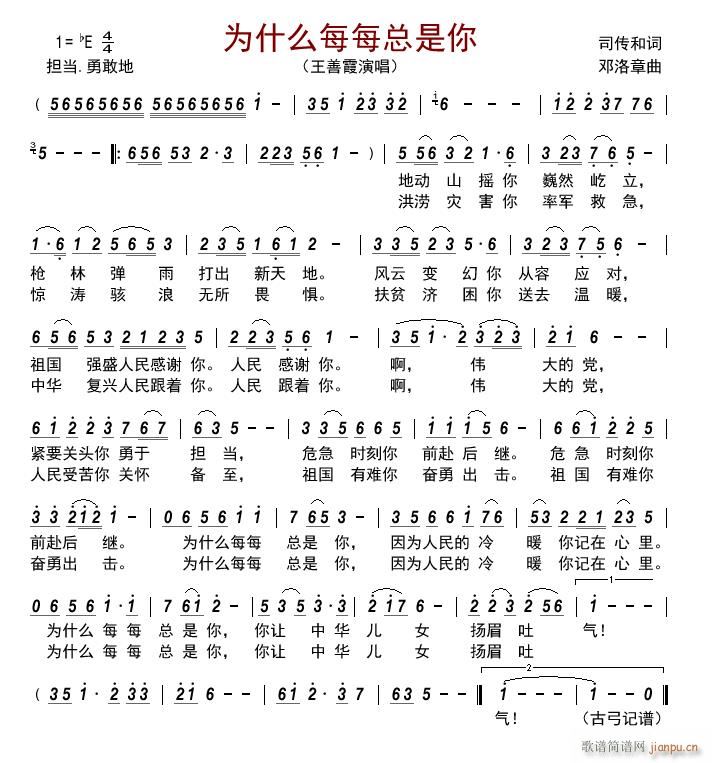 为什么每每总是你
1=♭E 4/4
司传和词
担当.勇敢地
（王善霞演唱）
邓洛章曲
( 56565656 56565656 1 - | 3 5 1 2 3 3 2 | 6 - - - | 1 2 2 3 7 7 6 |
5 - - - ‖: 6 5 6 5 3 2 · 3 | 2 2 3 5 6 1 - ) | 5 5 6 3 2 1 · 6 | 3 2 3 7 6 5 - |
地动 山 摇 你 巍然 屹 立，
洪涝 灾 害 你 率军 救 急，
1 · 6 1 2 5 6 5 3 | 2 3 5 1 6 1 2 - | 3 5 2 3 5 · 6 | 3 2 3 7 5 6 - |
枪 林 弹 雨 打出 新天 地。 风云 变 幻 你 从容 应 对，
惊 涛 骇 浪 无所 畏 惧。 扶贫 济 困 你 送去 温 暖，
6 5 6 5 3 2 1 2 3 5 | 2 2 3 5 6 1 - | 3 5 1 · 2 3 2 3 | 2 1 6 - |
祖国 强盛人民感谢 你。人民 感谢 你。 啊， 伟 大的 党，
中华 复兴人民跟着 你。人民 跟着 你。 啊， 伟 大的 党，
6 1 2 2 3 7 6 7 | 6 5 - - | 3 6 5 3 5 5 | 1 1 1 5 6 - | 6 6 1 2 2 5 |
紧要关头你 勇于 担 当， 危急 时刻你 前赴 后 继。 危 急 时刻你
人民受苦你 关怀 备 至， 祖国 有难你 奋勇 出 击。 祖 国 有难你
3 3 2 1 2 1 - | 0 6 5 6 1 1 | 7 6 5 3 - | 6 1 2 3 6 1 7 6 | 5 3 2 2 1 2 3 5 |
前赴后 继。 为什么每每 总是 你， 因为人民的 冷 暖 你记在 心 里。
奋勇出 击。 为什么每每 总是 你， 因为人民的 冷 暖 你记在 心 里。
0 6 5 6 1 · 1 | 7 6 1 2 - | 5 3 5 3 5 | 2 1 7 6 - | 2 2 3 2 5 6 | 1 - - - :‖
为什么 每 每 总 是 你， 你让 中 华 儿 女 扬眉 吐 气！
为什么 每 每 总 是 你， 你让 中 华 儿 女 扬眉 吐
( 3 5 1 · 2 3 3 | 2 1 6 - - | 6 1 2 · 3 1 7 | 6 3 5 - - ‖ 1 - - - | 1 - - 0 ‖
气！ （古弓记谱）
歌谱简谱网
jianpu.cn